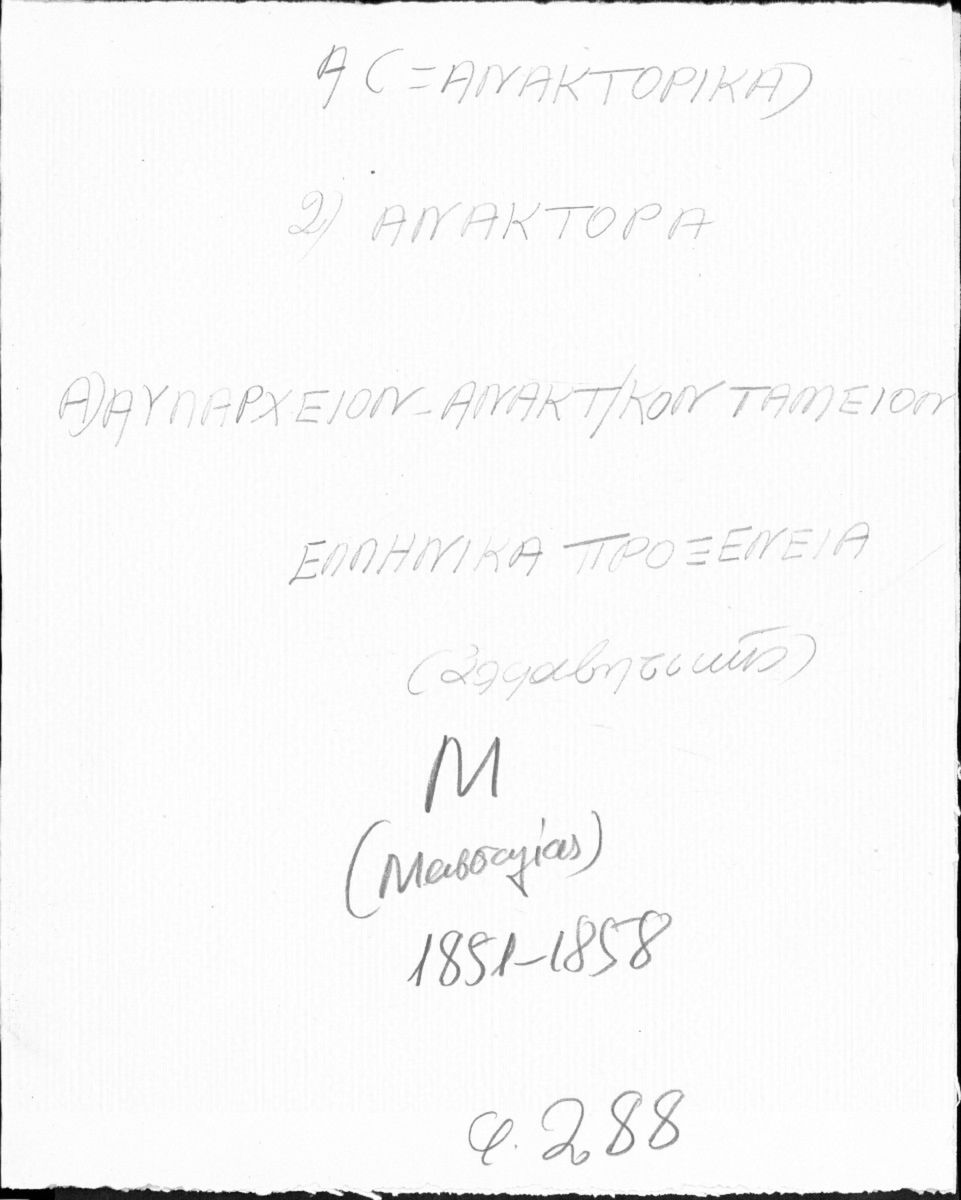 Α (=ΑΝΑΚΤΟΡΙΚΑ)
2) ΑΝΑΚΤΟΡΑ
Α) ΑΥΛΑΡΧΕΙΟΝ - ΑΝΑΚΤ/ΚΟΝ ΤΑΜΕΙΟΝ
ΕΛΛΗΝΙΚΑ ΠΡΟΞΕΝΕΙΑ
(αλφαβητικῶς)
Μ
(Μασσαλίας)
1851-1858
φ. 288